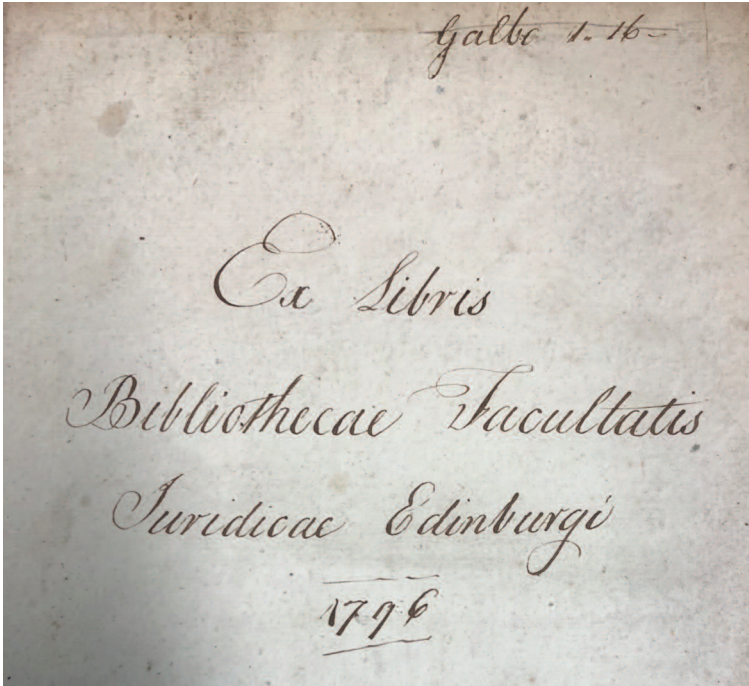 Galbo 1. 16-
Ex Libris
Bibliothecae Facultatis
Juridicae Edinburgi
1796